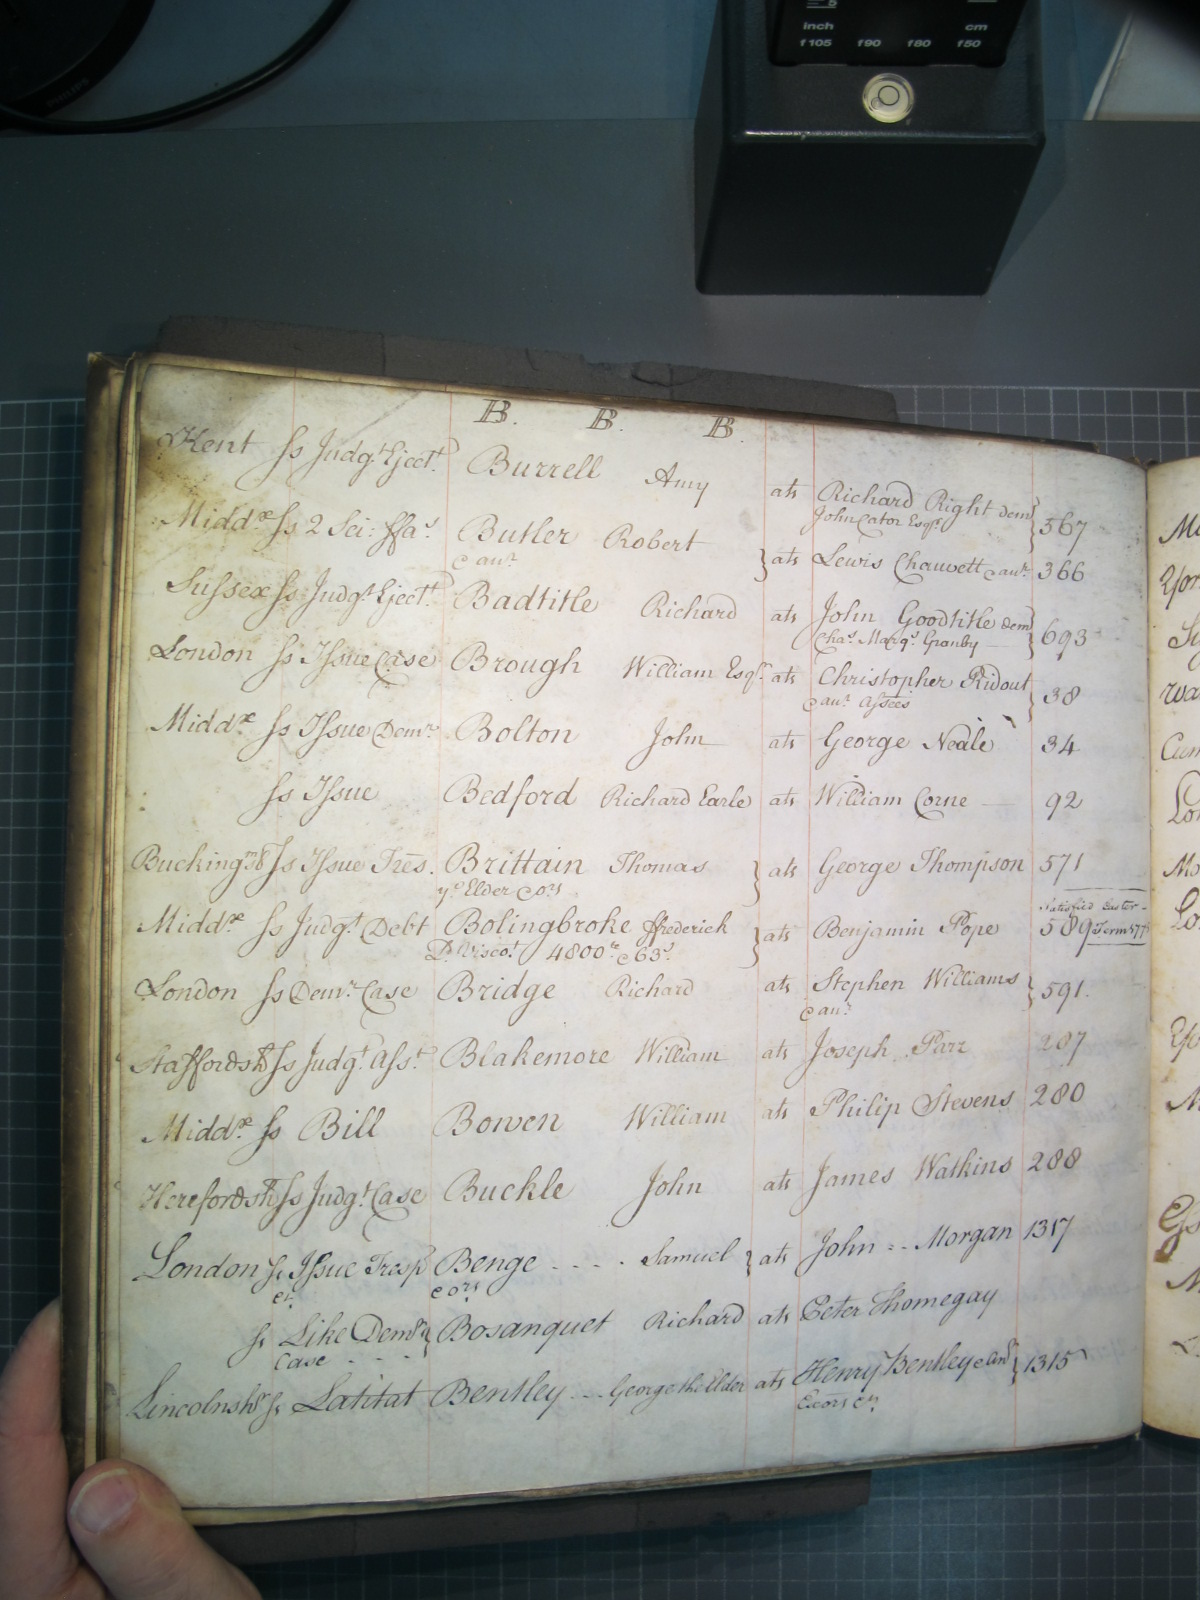 inch cm
f105 f90 f80 f50
PHILIPS
B. B. B.
Kent ſs Judgt. Eject. Burrell Amy ats Richard Right dem
John Cator Esqr. 567
Middx ſs 2 Sci: ffas. Butler Robert
& anr. ats Lewis Chauvett & anr. 366
Sussex ſs Judgt. Eject. Badtitle Richard ats John Goodtitle dem
Chas. Marqs. Granby 693
London ſs Issue Case Brough William Esqr. ats Christopher Ridout
& anr. Assees 38
Middx ſs Issue Demr. Bolton John ats George Neale 34
ſs Issue Bedford Richard Earle ats William Corne 92
Buckingms ſs Issue Tres. Brittain Thomas ats George Thompson 571
ye. Elder & ors.
Satisfied Easter
Middx ſs Judgt. Debt Bolingbroke ffrederick ats Benjamin Pope 589 Term 177
D. Viscot. 4800 & 63s.
London ſs Demr. Case Bridge Richard ats Stephen Williams 591.
& anr.
Staffordsh ſs Judgt. Asst. Blakemore William ats Joseph Parr 287
Middx ſs Bill Bowen William ats Philip Stevens 280
Herefordsh ſs Judgt. Case Buckle John ats James Watkins 288
London ſs Issue Tresp Benge Samuel ats John Morgan 1317
& ors.
ſs Like Demr. Bosanquet Richard ats Peter Thomegay
Case
Lincolnsh ſs Latitat Bentley George the Elder ats Henry Bentley & anr. 1315
Exors